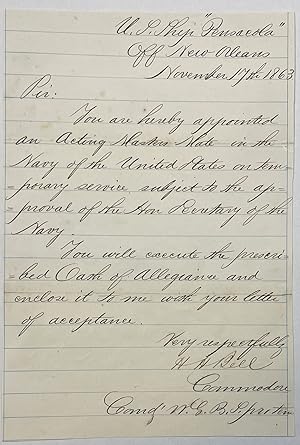 U.S. Ship "Pensacola"
Off New Orleans
November 17th 1863
Sir:
You are hereby appointed
an Acting Master's Mate in the
Navy of the United States on tem-
=porary service, subject to the ap-
=proval of the Hon Secretary of the
Navy.
You will execute the prescri-
=bed Oath of Allegiance and
enclose it to me with your letter
of acceptance.
Very respectfully
H H Bell
Commodore
Comd'g W. G. B. Squadron